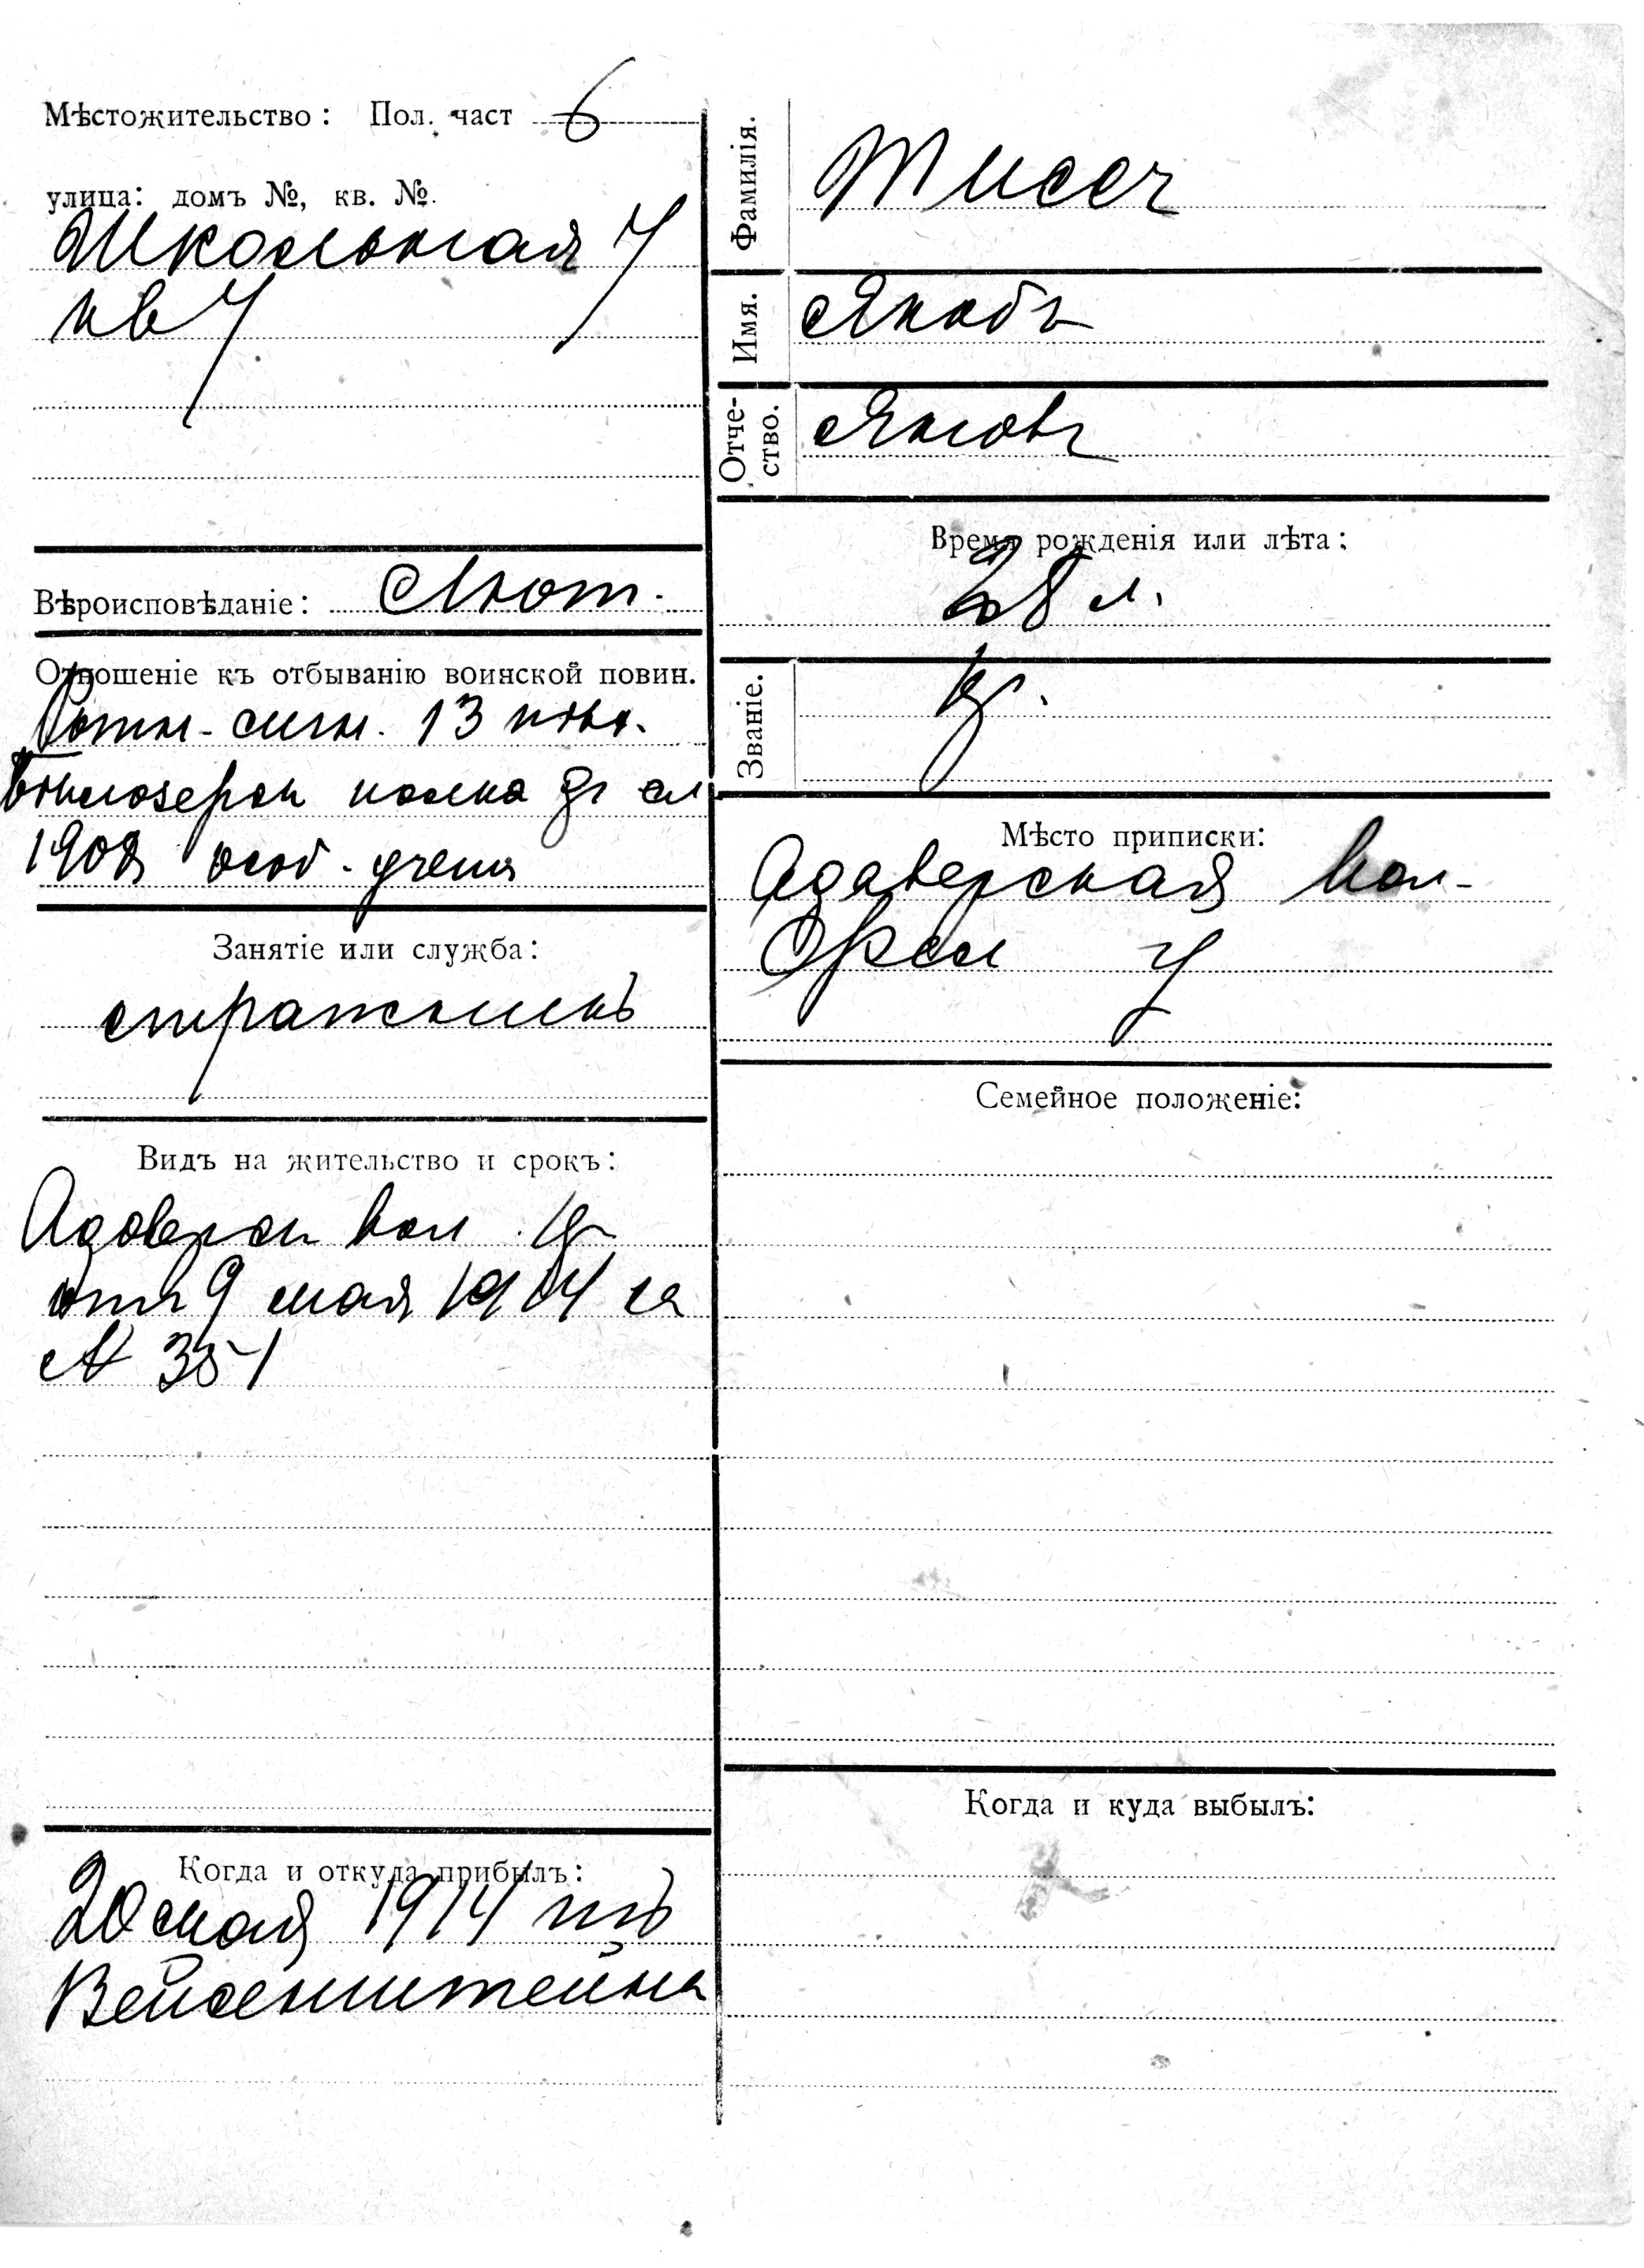 Мѣстожительство: Пол. част 6
улица: домъ №, кв. №.
Школьная 7
кв 7
Вѣроисповѣданіе: Лют.
Отношеніе къ отбыванію воинской повин.
13 пѣх.
Бѣлозерск полка
1908
Занятіе или служба:
стражникъ
Видъ на жительство и срокъ:
Адаверск вол.
отъ 9 мая 1914 за
№ 351
Когда и откуда прибылъ:
20 мая 1914 изъ
Вейсенштейна
Фамилія.
Тиссъ
Имя.
Якобъ
Отче-
ство.
Яковъ
Время рожденія или лѣта:
28 л.
Званіе.
кр.
Мѣсто приписки:
Адаверская вол-
у
Семейное положеніе:
Когда и куда выбылъ: